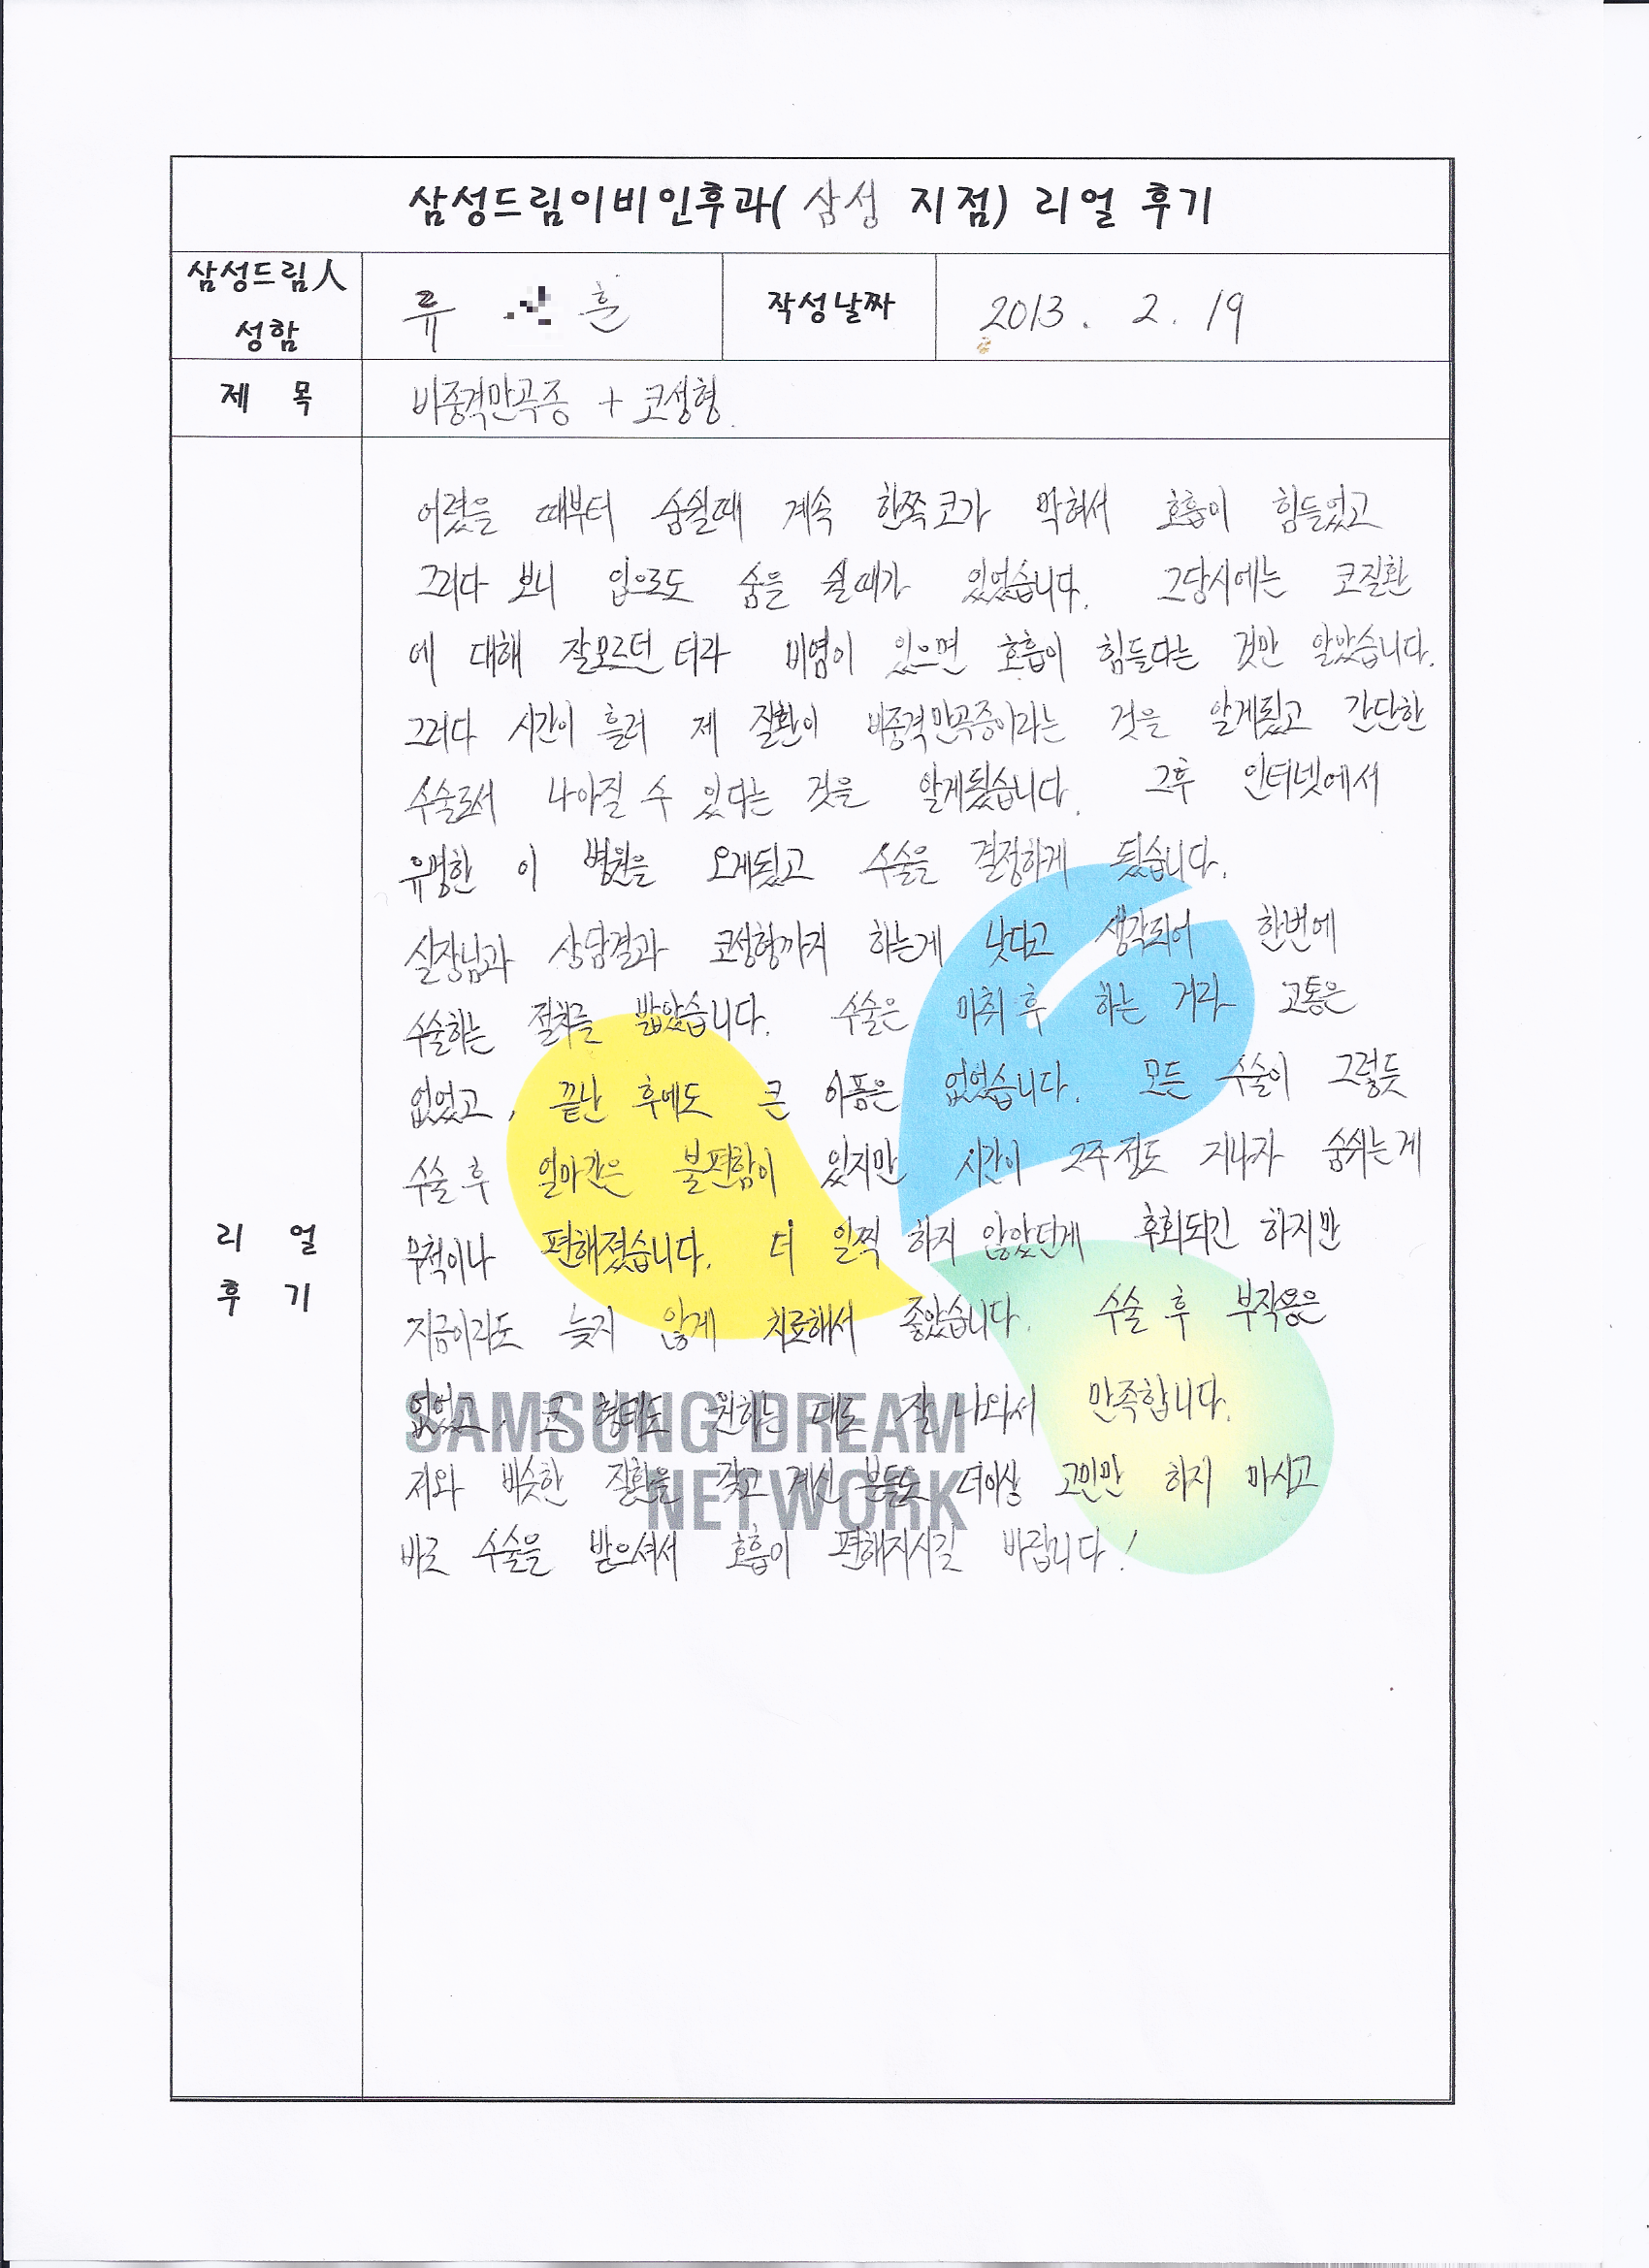 삼성드림이비인후과( 삼성 지점) 리얼 후기
삼성드림人
성함
류 훈
작성날짜
2013. 2. 19
제 목
비중격만곡증 + 코성형.
리 얼
후 기
어렸을 때부터 숨쉴때 계속 한쪽코가 막혀서 호흡이 힘들었고
그러다 보니 입으로도 숨을 쉴때가 있었습니다. 그당시에는 코질환
에 대해 잘모르던 터라 비염이 있으면 호흡이 힘들다는 것만 알았습니다.
그러다 시간이 흘러 제 질환이 비중격만곡증이라는 것을 알게됬고 간단한
수술로서 나아질 수 있다는 것을 알게됬습니다. 그후 인터넷에서
유명한 이 병원을 오게됬고 수술을 결정하게 됬습니다.
실장님과 상담결과 코성형까지 하는게 낫다고 생각되어 한번에
수술하는 절차를 밟았습니다. 수술은 마취 후 하는 거라 고통은
없었고, 끝난 후에도 큰 아픔은 없었습니다. 모든 수술이 그렇듯
수술 후 얼마간은 불편함이 있지만 시간이 2주 정도 지나자 숨쉬는게
무척이나 편해졌습니다. 더 일찍 하지 않았던게 후회되긴 하지만
지금이라도 늦지 않게 치료해서 좋았습니다. 수술 후 부작용은
없었고, 코 형태도 원하는 대로 잘 나와서 만족합니다.
저와 비슷한 질환을 갖고 계신 분들도 더이상 고민만 하지 마시고
바로 수술을 받으셔서 호흡이 편해지시길 바랍니다!
SAMSUNG DREAM
NETWORK